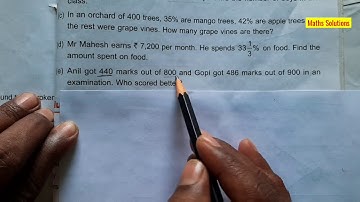 Maths Solutions
class.
c) In an orchard of 400 trees, 35% are mango trees, 42% are apple trees
the rest were grape vines. How many grape vines are there?
d) Mr Mahesh earns ₹ 7,200 per month. He spends 33 1/3 % on food. Find the
amount spent on food.
e) Anil got 440 marks out of 800 and Gopi got 486 marks out of 900 in an
examination. Who scored